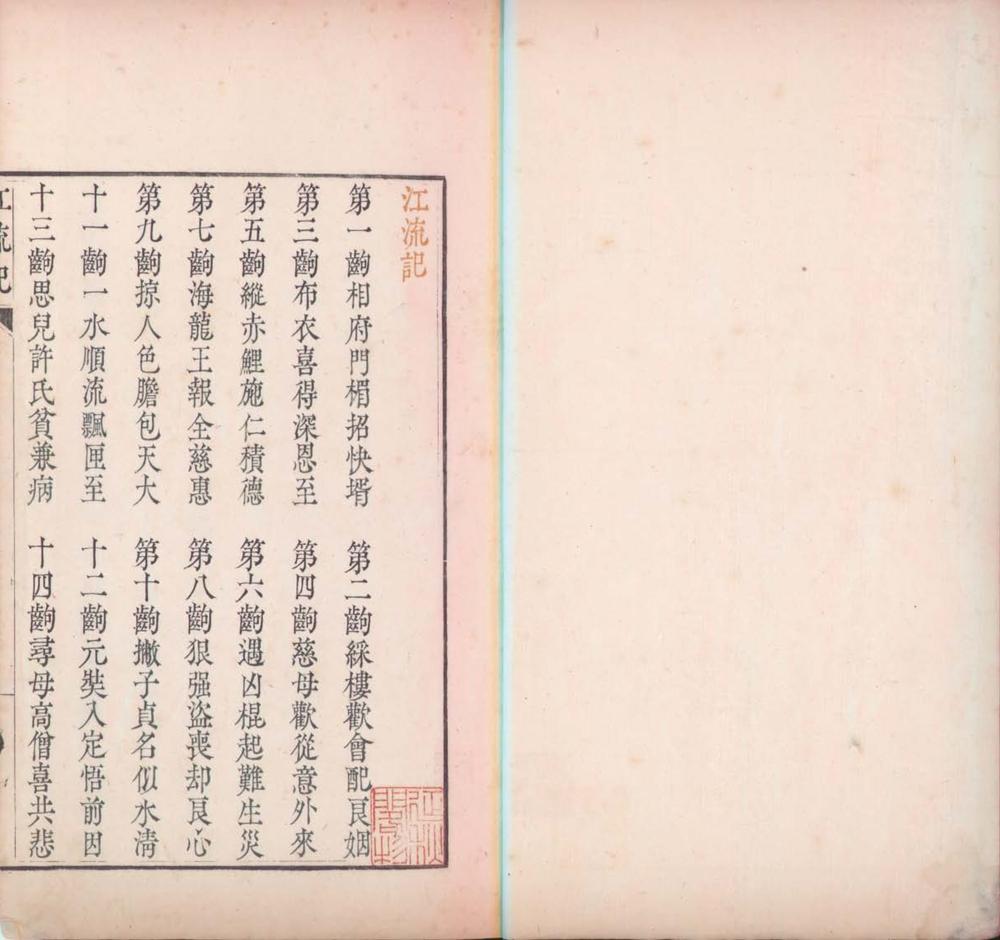 江流記
第一齣相府門楣招快壻　第二齣綵樓歡會配良姻
第三齣布衣喜得深恩至　第四齣慈母歡從意外來
第五齣縱赤鯉施仁積德　第六齣遇凶棍起難生災
第七齣海龍王報全慈惠　第八齣狠强盜喪却良心
第九齣掠人色膽包天大　第十齣撇子貞名似水清
十一齣一水順流飄匣至　十二齣元奘入定悟前因
十三齣思兒許氏貧兼病　十四齣尋母高僧喜共悲
江流記